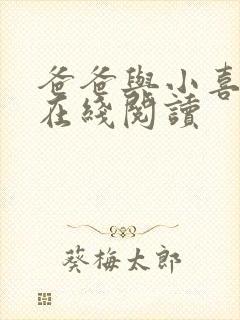 爸爸與小喜
在綫閱讀
葵梅太郎